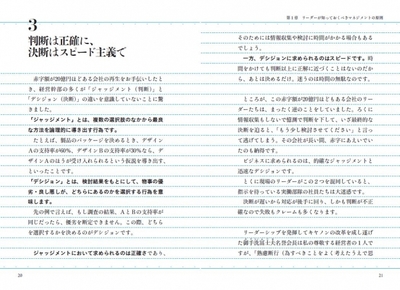 3
判断は正確に、
決断はスピード主義で
赤字額が20億円ほどある会社の再生をお手伝いしたと
き、経営幹部の多くが「ジャッジメント（判断）」と
「デシジョン（決断）」の違いを意識していないことに驚
きました。
「ジャッジメント」とは、複数の選択肢のなかから最良
な方法を論理的に導き出す行為です。
たとえば、製品のパッケージを決めるとき、デザイン
Aの支持率が60％、デザインBの支持率が30％なら、デ
ザインAのほうが受け入れられるという仮説を導き出す、
といったことです。
「デシジョン」とは、検討結果をもとにして、物事の優
劣・良し悪しが、どちらにあるのかを選択する行為を意
味します。
先の例で言えば、もし調査の結果、AとBの支持率が
同じだったら、優劣を断定できません。この際、どちら
を選択するかを決めるのがデシジョンです。
ジャッジメントにおいて求められるのは正確さであり、
20
第1章　リーダーが知っておくべきマネジメントの原則
そのためには情報収集や検討に時間がかかる場合もある
でしょう。
一方、デシジョンに求められるのはスピードです。時
間をかけても判断以上に正解に近づくことはないのだか
ら、あとは決めるだけ。迷うのは時間の無駄なのです。
ところが、この赤字額が20億円ほどもある会社のリー
ダーたちは、まったく逆のことをしていました。ろくに
情報収集もしないで憶測で判断を下して、いざ最終的な
決断を迫ると、「もう少し検討させてください」と言っ
て逃げてしまう。その会社が長い間、赤字にあえいでい
たのも納得です。
ビジネスに求められるのは、的確なジャッジメントと
迅速なデシジョンです。
とくに現場のリーダーがこの2つを混同していると、
指示を待っている実働部隊の社員たちは大迷惑です。
決断が遅いから対応が後手に回り、しかも判断が不正
確なので失敗もクレームも多くなります。
リーダーシップを発揮してキヤノンの改革を成し遂げ
た御手洗冨士夫名誉会長は私の尊敬する経営者の1人で
すが、「熟慮断行（為すべきことをよく考えたうえで思
21